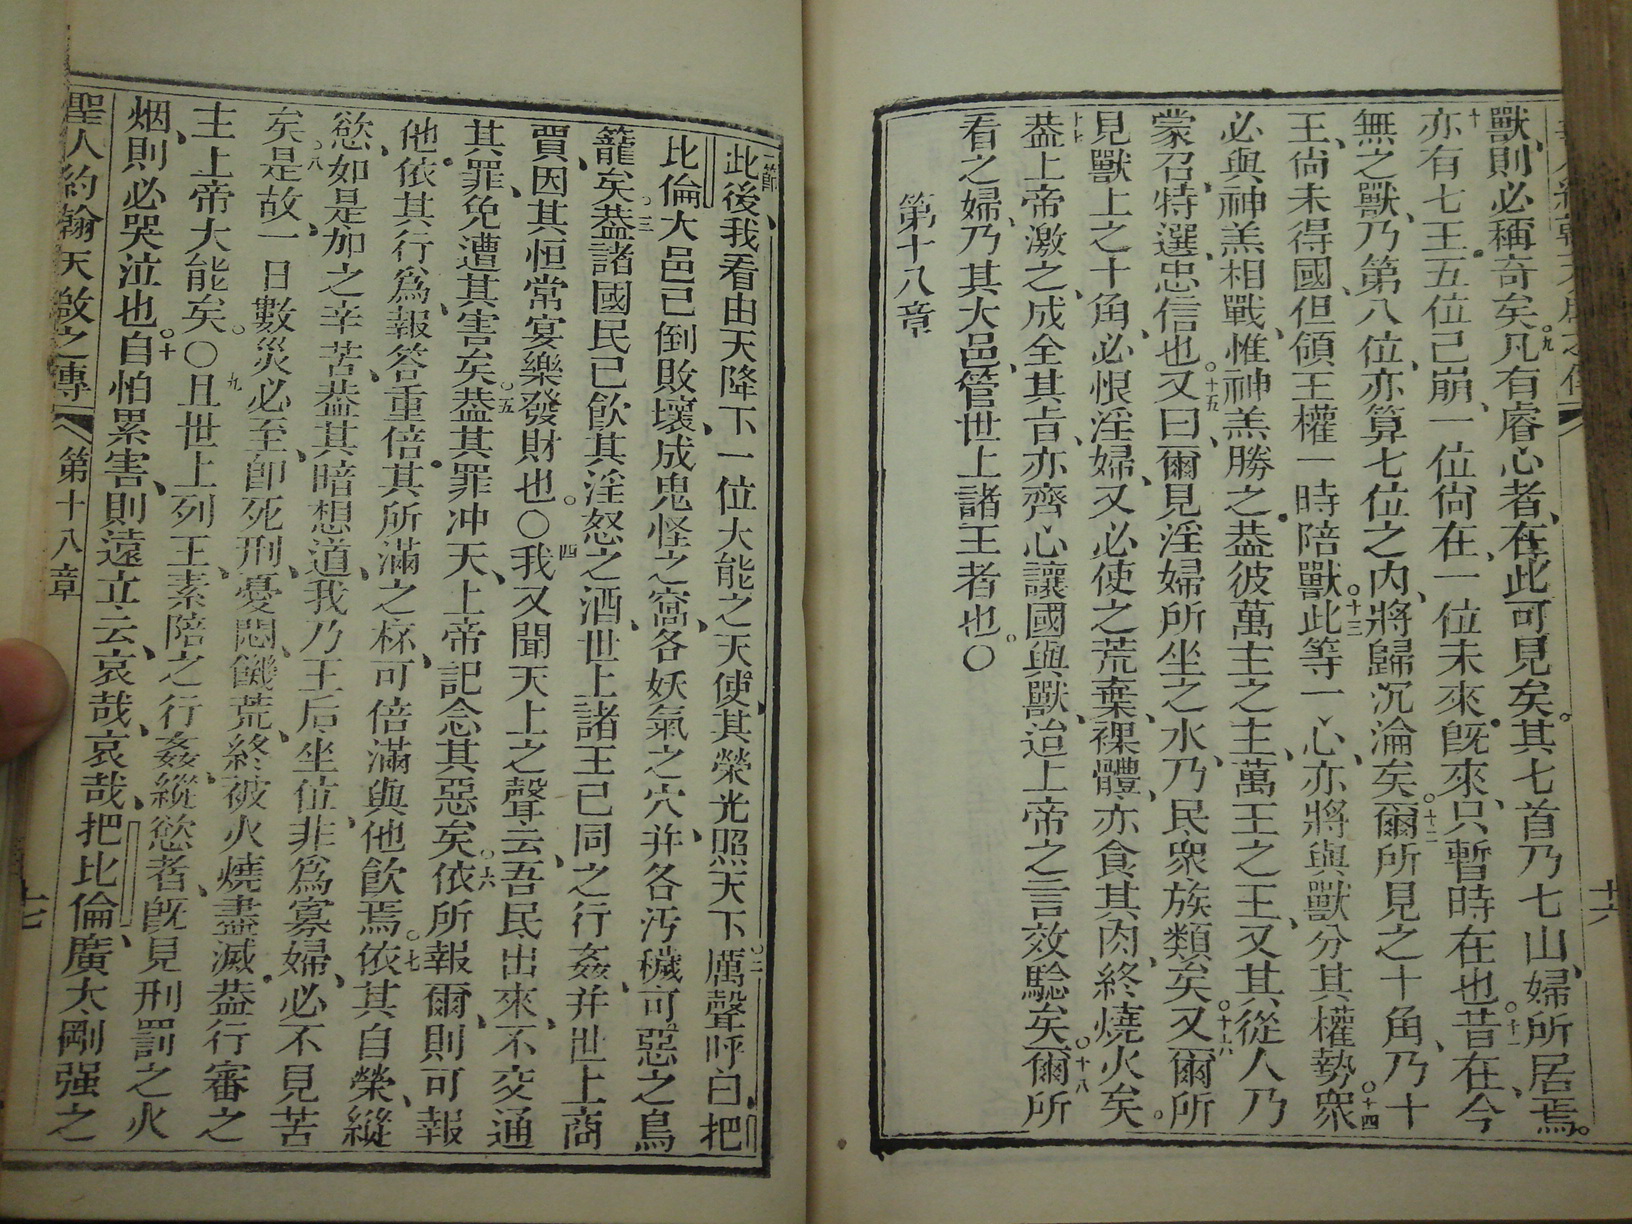 獸、則必稱奇矣。九凡有睿心者、在此可見矣。其七首乃七山、婦所居焉。
十亦有七王五位己崩、一位尚在、一位未來、旣來、只暫時在也。十一昔在、今
無之獸、乃第八位、亦算七位之內、將歸沉淪矣。十二爾所見之十角、乃十
王、尚未得國、但領王權一時陪獸。十三此等一心、亦將與獸分其權勢。十四衆
必與神羔相戰、惟神羔勝之。葢彼萬主之主、萬王之王、又其從人乃
蒙召、特選、忠信也。十五又曰、爾見淫婦所坐之水、乃民衆族類矣。十六又爾所
見獸上之十角、必恨淫婦、又必使之荒棄、裸體、亦食其肉、終燒火矣。
十七葢上帝激之、成全其旨、亦齊心讓國與獸、迨上帝之言效騐矣。十八爾所
看之婦、乃其大邑、管世上諸王者也。〇
第十八章
十六
一節此後、我看由天降下一位大能之天使、其榮光照天下。二厲聲呼曰、把
比倫大邑已倒敗壞、成鬼怪之窩、各妖氣之穴、并各汚穢可惡之鳥
籠矣。三葢諸國民已飮其淫怒之酒、世上諸王已同之行姦、并世上商
賈、因其恒常宴樂發財也。〇四我又聞天上之聲云、吾民出來、不交通
其罪、免遭其害矣。五葢其罪冲天、上帝記念其惡矣。六依所報爾、則可報
他、依其行爲、報答重倍其所滿之杯、可倍滿與他飮焉。七依其自榮、縱
慾、如是加之辛苦、葢其暗想道、我乃王后坐位、非爲寡婦、必不見苦
矣。八是故、一日數災必至、卽死刑、憂悶、饑荒、終被火燒盡滅。葢行審之
主上帝大能矣。〇九且世上列王、素陪之行姦、縱慾者、旣見刑罰之火
烟、則必哭泣也。十自怕累害、則遠立云、哀哉、哀哉、把比倫、廣大剛强之
聖人約翰天啟之傳 第十八章 十七